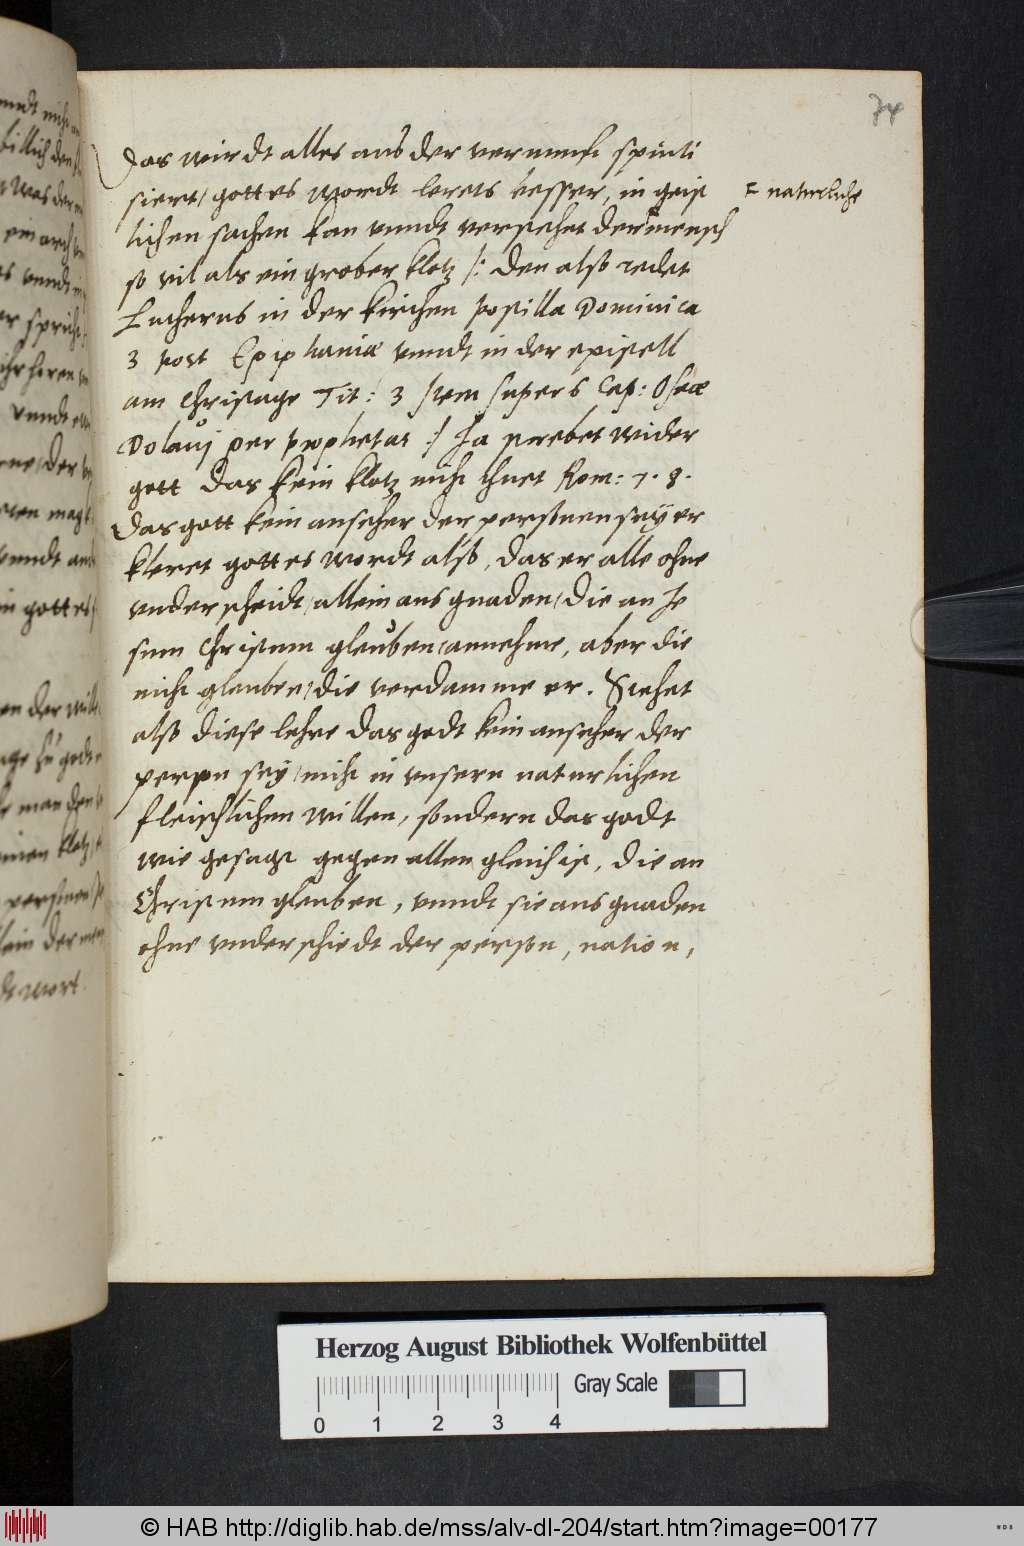 74
Das wirdt alles aus der vernunft spinti
sieret / gottes wordt lerets besser, in geist
= naturliche
lichen sachen kan vnndt verstehet der mensch
so vil als ein grober klotz /: den also redet
Lutherus in der kirchen postilla Dominica
3 post Epiphaniæ vnndt in der epistell
am Christage Tit: 3 Item super 5 Cap: Oseæ
Dolavj per prophetas :/ Ja strebet wider
gott das kein klotz nicht thuet Rom: 7. 8.
Das gott kein anseher der personen sey er
kleret gottes wordt also, das er alle ohne
vnderscheidt / allein aus gnaden / die an Je
sum Christum gleuben / annehme, aber die
nicht gleuben / die verdamme er. Stehet
also diese lehre das godt kein anseher der
person sey / nicht in vnsern naturlichen
fleischlichen willen, sondern das godt
wie gesagt gegen allen gleich ist, die an
Christum gleuben, vnndt sie aus gnaden
ohne vnderschiedt der person, nation,
Herzog August Bibliothek Wolfenbüttel
Gray Scale
0 1 2 3 4
© HAB http://diglib.hab.de/mss/alv-dl-204/start.htm?image=00177